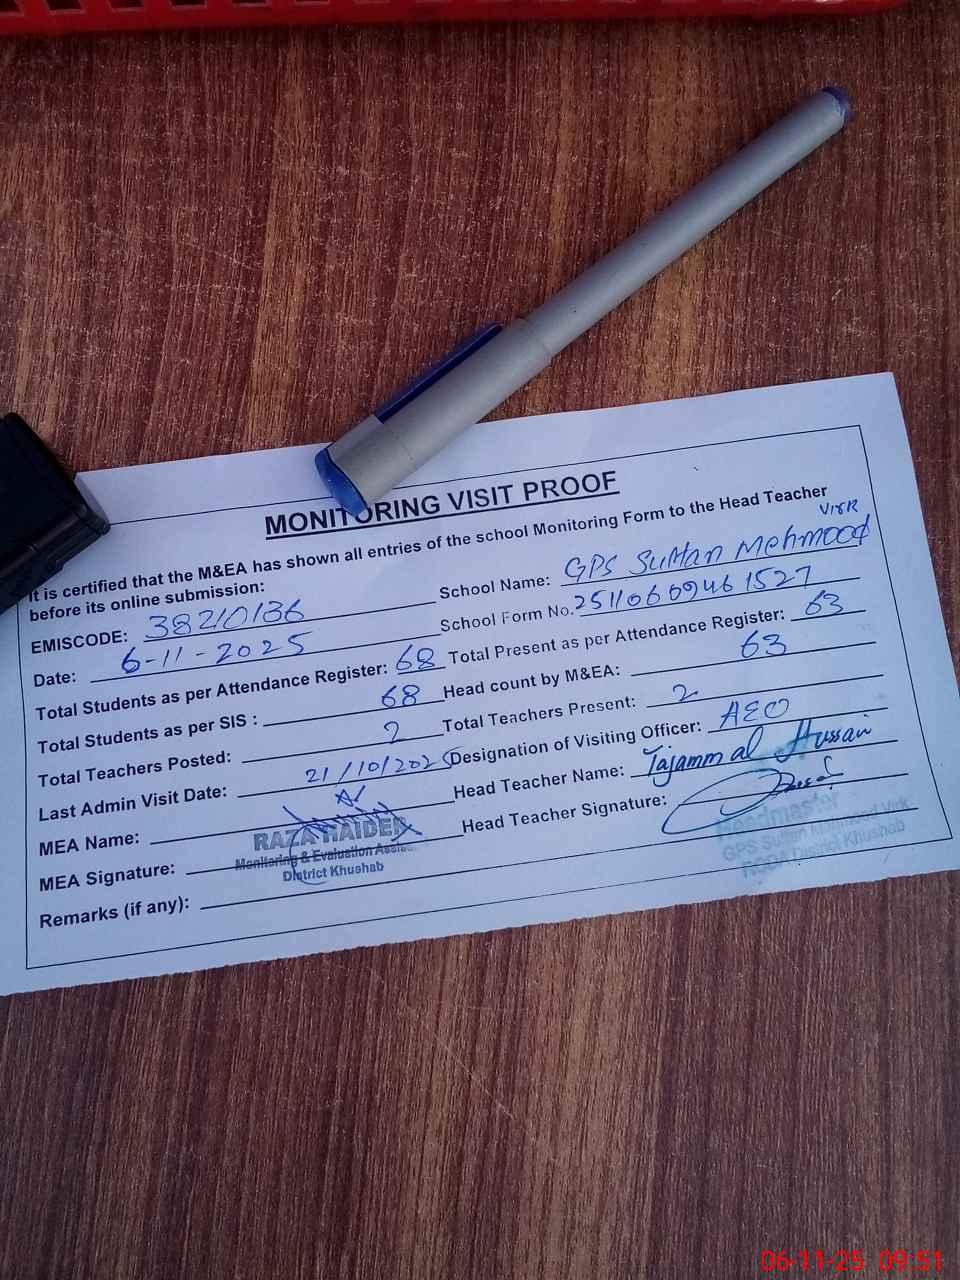 MONITORING VISIT PROOF
It is certified that the M&EA has shown all entries of the school Monitoring Form to the Head Teacher
before its online submission:
EMISCODE: 38210136 School Name: GPS Sultan Mehmood VIRK
Date: 6-11-2025 School Form No. 2511060946 1527
Total Students as per Attendance Register: 68 Total Present as per Attendance Register: 63
Total Students as per SIS : 68 Head count by M&EA: 63
Total Teachers Posted: 2 Total Teachers Present: 2
Last Admin Visit Date: 21/10/2025 Designation of Visiting Officer: AEO
MEA Name: Head Teacher Name: Tajammal Hussain
MEA Signature: Head Teacher Signature:
RAZA HAIDER
Monitoring & Evaluation
District Khushab
Headmaster
GPS Sultan Mehmood Virk
District Khushab
Remarks (if any):
06-11-25 09:51